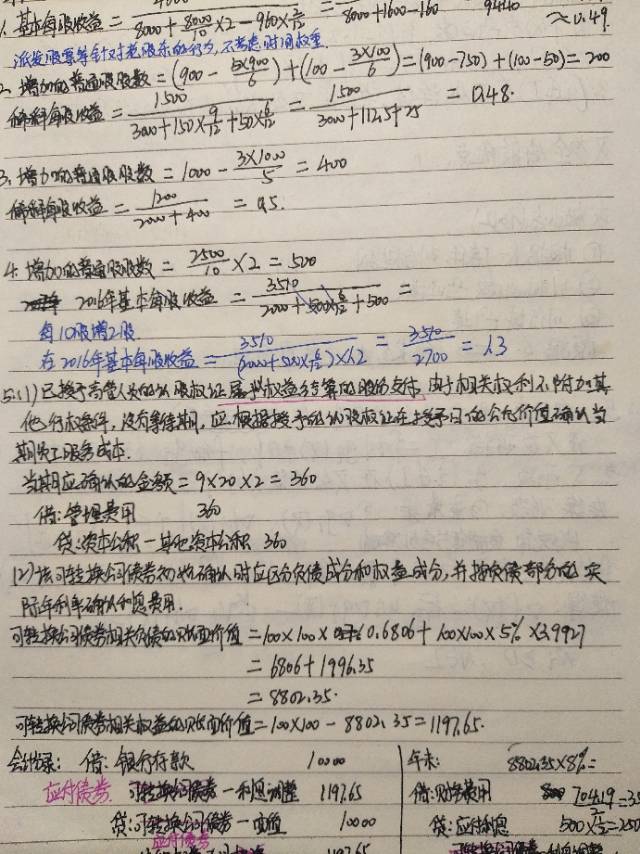 1. 基本每股收益 = 4600 / (8000 + 8000/10 × 2 − 960 × 2/12) = / (8000 + 1600 − 160) 9440 ≈ 0.49.
派发股票等针对老股东的行为,不考虑时间权重.
2. 增加的普通股股数 = (900 − 5×900/6) + (100 − 3×100/6) = (900−750) + (100−50) = 200
稀释每股收益 = 1500 / (3000 + 150 × 9/12 + 50 × 6/12) = 1500 / (3000 + 112.5 + 25) = 0.48.
3. 增加的普通股股数 = 1000 − 3×1000/5 = 400
稀释每股收益 = 1200 / (2000 + 400) = 0.5.
4. 增加的普通股股数 = 2500/10 × 2 = 500
2016年基本每股收益 = 3510 / (2000 + 500 × 6/12 + 500) =
每10股增2股
在2016年基本每股收益 = 3510 / ((2000 + 500 × 6/12) × 1.2) = 3510 / 2700 = 1.3
5.(1) 已授予高管人员的认股权证属于权益结算的股份支付. 由于相关权利不附加其
他行权条件, 没有等待期, 应根据授予的认股权证在授予日的公允价值确认当
期员工服务成本.
当期应确认的金额 = 9×20×2 = 360
借:管理费用 360
贷:资本公积 — 其他资本公积 360
(2) 该可转换公司债券初始确认时应区分负债成分和权益成分, 并按负债部分的实
际年利率确认利息费用.
可转换公司债券相关负债的账面价值 = 100×100× 0.6806 + 100×100×5%×3.9927
= 6806 + 1996.35
= 8802.35.
可转换公司债券相关权益的账面价值 = 100×100 − 8802.35 = 1197.65.
会计分录: 借: 银行存款 10000
应付债券 可转换公司债券 — 利息调整 1197.65
贷:可转换公司债券 — 面值 10000
应付债券
1197.65
年末: 8802.35×8% =
借:财务费用 704.19/2 = 35
贷:应付利息 500 × 1/2 = 250